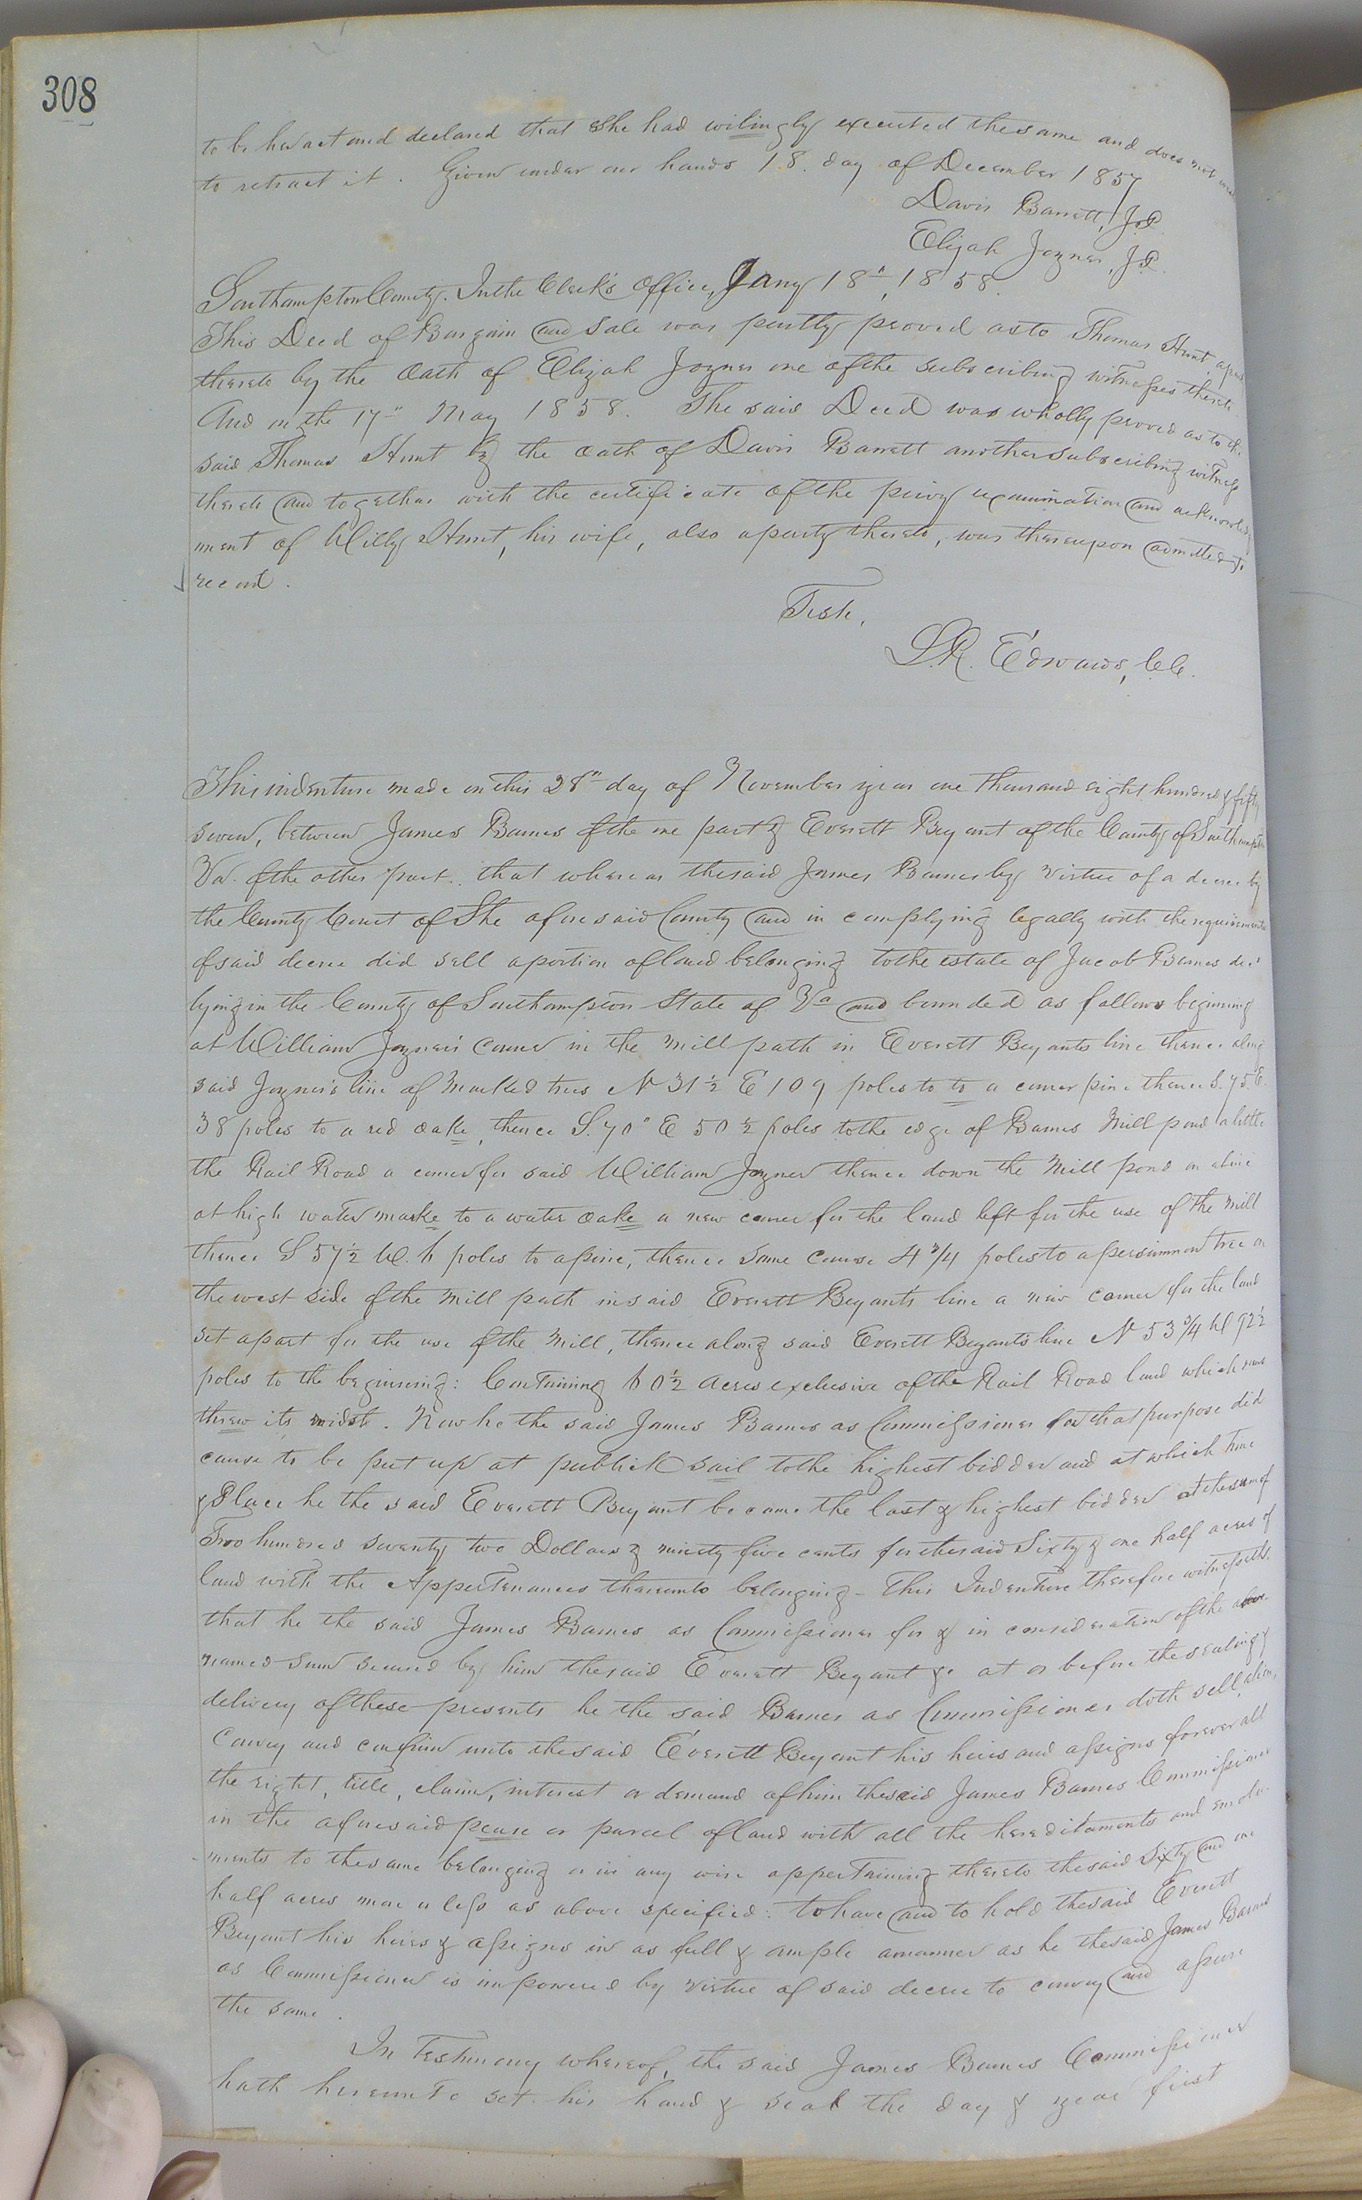 308
to be her act and declared that she had wilingly executed the same and does not
to retract it. Given under our hands 18. day of December 1857
Davis Barrett, J.P.
Elijah Joyner, J.P.
Southampton County. In the Clerk's Office, Jany 18", 1858.
This Deed of Bargain and Sale was partly proved as to Thomas Hunt, a party
thereto by the Oath of Elijah Joyner one of the subscribing witnesses thereto.
And on the 17" May 1858. The said Deed was wholly proved as to the
said Thomas Hunt by the oath of Davis Barrett another subscribing witness
thereto and together with the certificate of the privy examination and acknowledg
ment of Milly Hunt, his wife, also a party thereto, was thereupon admitted to
record.
Teste,
L.R. Edwards, C.C.
This indenture made on this 28" day of November year one thousand eight hundred & fifty
seven, between James Barnes of the one part & Everett Bryant of the County of Southampton
Va. of the other part. that whereas the said James Barnes by virtue of a decree by
the County Court of She aforesaid County and in complying legally with the requirements
of said decree did sell a portion of land belonging to the estate of Jacob Barnes dec'd
lying in the County of Southampton State of Va and bounded as follows beginning
at William Joyner's corner in the mill path in Everett Bryants line thence along
said Joyner's line of marked trees N 31½ E 109 poles to to a corner pine thence S. 75. E.
38 poles to a red oake, thence S. 70° E 50½ poles to the edge of Barnes Mill pond a little
the Rail Road a corner for said William Joyner thence down the Mill pond on a line
at high water marke to a water oake a new corner for the land left for the use of the mill
thence S 57½ W. 6 poles to a pine, thence same course 4¾ poles to a persimmon tree on
the west side of the mill path in said Everett Bryants line a new corner for the land
set apart for the use of the mill, thence along said Everett Bryants line N 53¾ W 92½
poles to the beginning: Containing 60½ acres exclusive of the Rail Road land which runs
threw its midst. Now he the said James Barnes as Commissioner for that purpose did
cause to be put up at publick sail to the highest bidder and at which time
& Place he the said Everett Bryant became the last & highest bidder at the sum of
Two hundred seventy two Dollars & ninety five cents for the said Sixty & one half acres of
land with the Appertenances thereunto belonging - This Indenture therefore witnesseth.
that he the said James Barnes as Commissioner for & in consideration of the above
named sum secured by him the said Everett Bryant &c at or before the sealing &
delivery of these presents he the said Barnes as Commissioner doth sell, alien,
convey and confirm unto the said Everett Bryant his heirs and assigns forever all
the right, title, claim, interest or demand of him the said James Barnes Commissioner
in the aforesaid pease or parcel of land with all the hereditaments and emolu-
ments to the same belonging or in any wise appertaining thereto the said Sixty and one
half acres more or less as above specified: to have and to hold the said Everett
Bryant his heirs & assigns in as full & ample a manner as he the said James Barnes
as Commissioner is impowered by virtue of said decree to convey and assure
the same.
In Testimony whereof, the said James Barnes Commissioner
hath hereunto set his hand & seal the day & year first